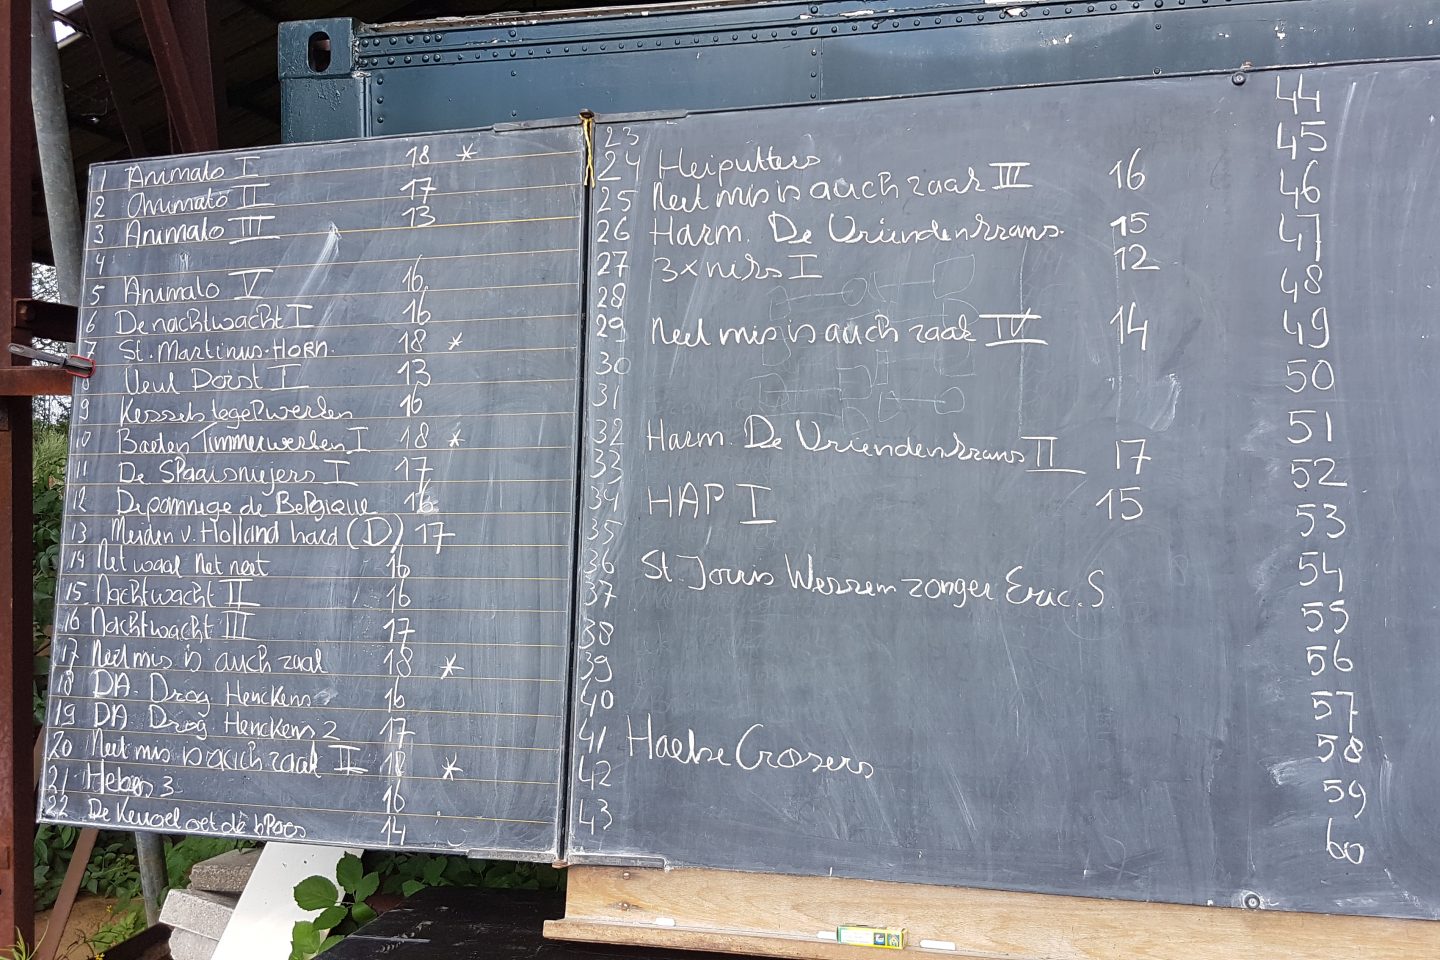 1 Animato I 18 *
2 Animato II 17
3 Animato III 13
4
5 Animato V 16
6 De nachtwacht I 16
7 St. Martinus-Horn. 18 *
8 13
9 16
10 Baeten Timmerwerken I 18 *
11 De I 17
12 Depannage de Belgique 16
13 Meiden v. Holland hard (D) 17
14 Net waal Net neet 16
15 Nachtwacht II 16
16 Nachtwacht III 17
17 Neet mis is auch zaat 18 *
18 DA. Drog Henckens 16
19 DA Drog. Henckens 2 17
20 Neet mis is auch raak II 18 *
21 3 16
22 De oet de 14
23
24 Heiputters
25 Neet mis is auch raak III 16
26 Harm. De Vriendenkrans. 15
27 3x niks I 12
28
29 Neet mis is auch raak IV 14
30
31
32 Harm. De Vriendenkrans II 17
33
34 HAP I 15
35
36 St. Joris Wessem zonger Eric. S
37
38
39
40
41 Haelse
42
43
44
45
46
47
48
49
50
51
52
53
54
55
56
57
58
59
60